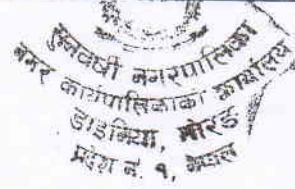 सुनवर्षी नगरपालिका
नगर कार्यपालिकाको कार्यालय
डाइनिया, मोरङ
प्रदेश नं. १, नेपाल